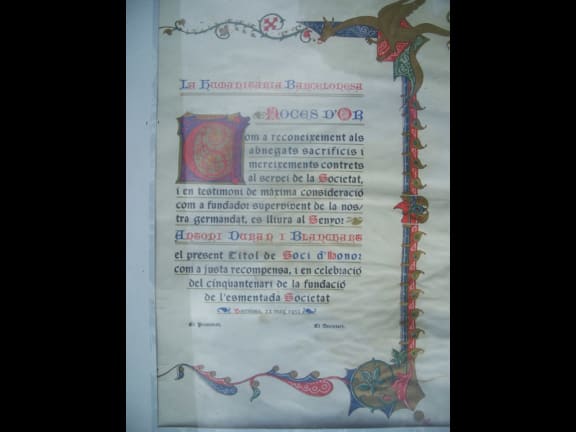 La Humanitària Barcelonesa
Noces d'Or
Com a reconeixement als
abnegats sacrificis i
mereixements contrets
al servei de la Societat,
i en testimoni de màxima consideració
com a fundador supervivent de la nos-
tra germandat, es lliura al Senyor
Antoni Duran i Blanchart
el present Títol de Soci d'Honor
com a justa recompensa, i en celebració
del cinquantenari de la fundació
de l'esmentada Societat
Barcelona, 22 maig
El President,
El Secretari,